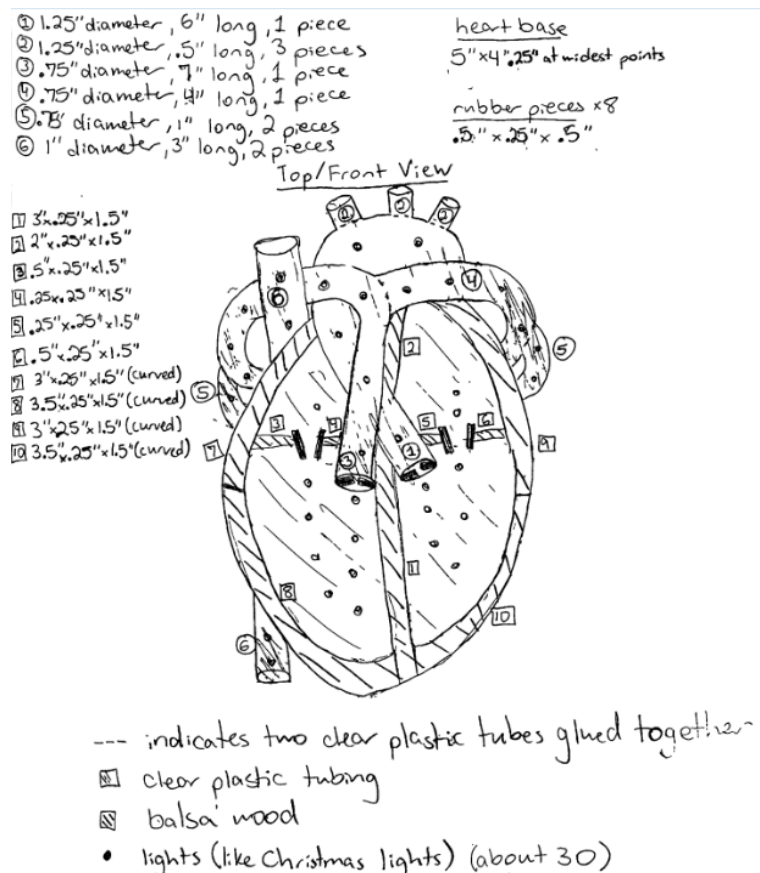 ① 1.25" diameter, 6" long, 1 piece
② 1.25" diameter, .5" long, 3 pieces
③ .75" diameter, 7" long, 1 piece
④ .75" diameter, 4" long, 1 piece
⑤ .75" diameter, 1" long, 2 pieces
⑥ 1" diameter, 3" long, 2 pieces
heart base
5"x4".25" at widest points
rubber pieces x8
.5" x .25" x .5"
Top/Front View
1 3"x.25"x1.5"
2 2"x.25"x1.5"
3 .5"x.25"x1.5"
4 .25x.25"x1.5"
5 .25"x.25"x1.5"
6 .5"x.25"x1.5"
7 3"x.25"x1.5" (curved)
8 3.5"x.25"x1.5" (curved)
9 3"x.25"x1.5" (curved)
10 3.5"x.25"x1.5" (curved)
② ② ②
⑥ ④
2 ⑤
⑤
3 4 5 6
7 ③ ① 9
1
8
10
⑥
--- indicates two clear plastic tubes glued together
clear plastic tubing
balsa wood
• lights (like Christmas lights) (about 30)